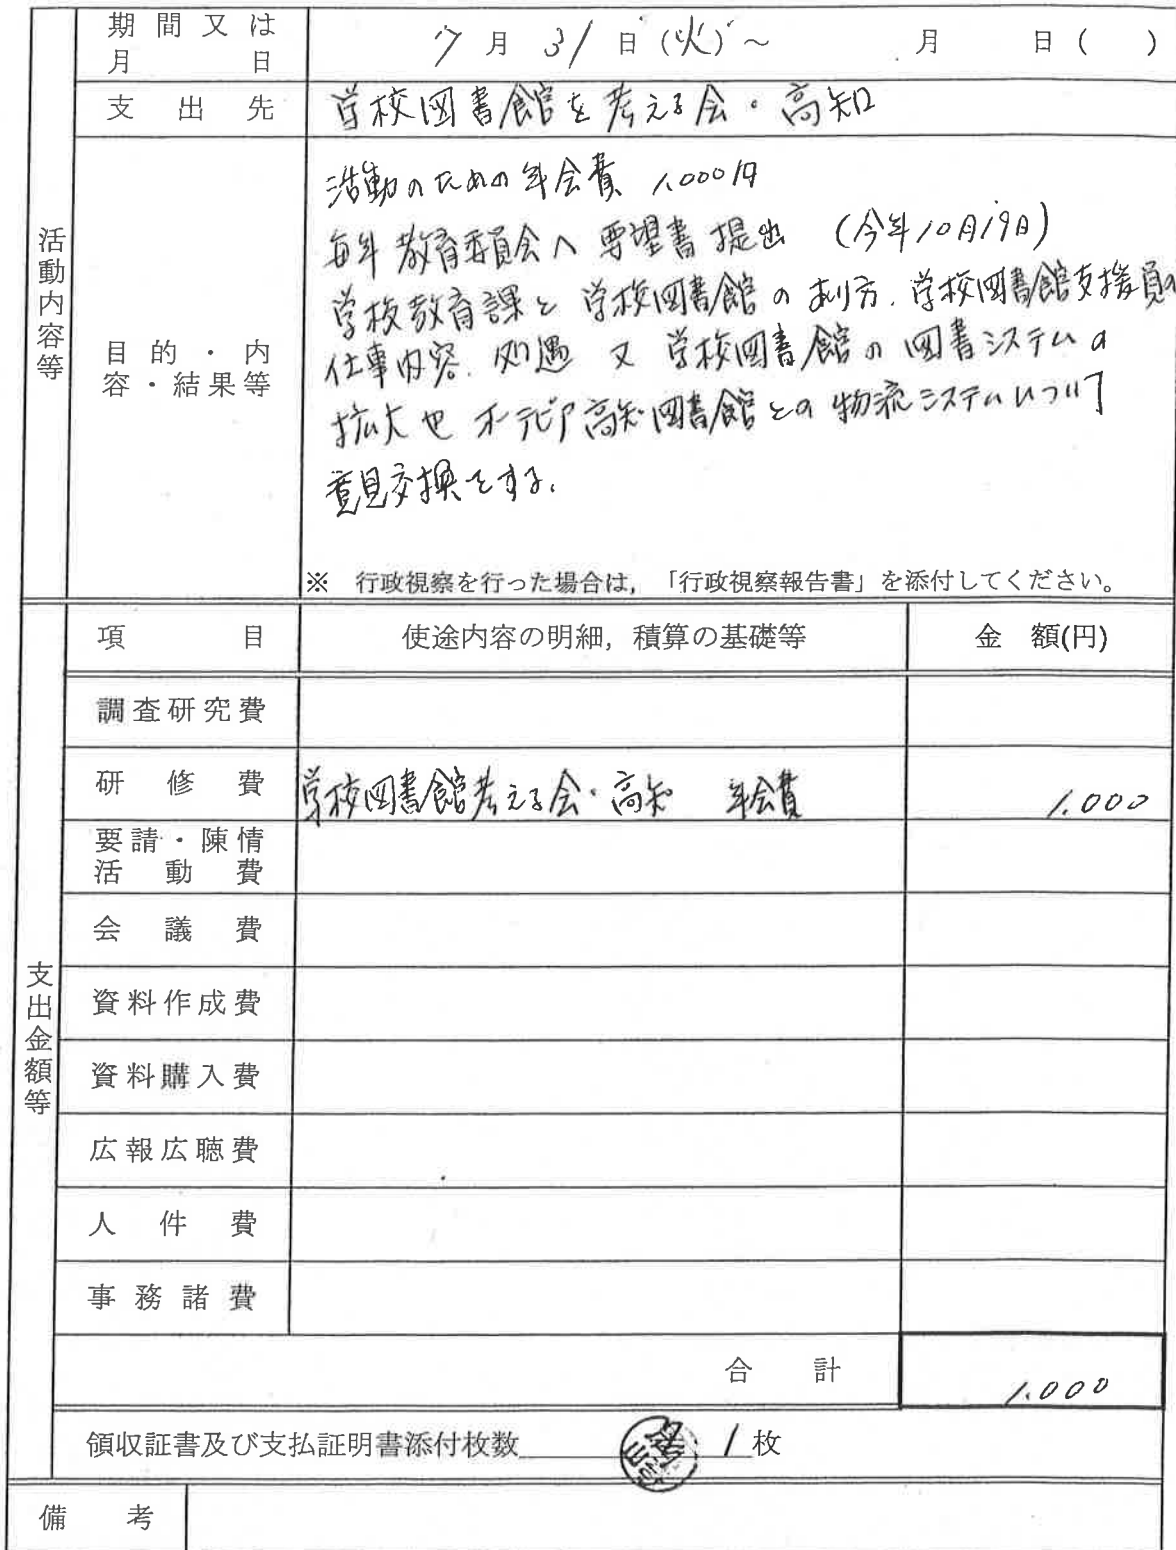 期間又は月日 7月31日(火)～ 月 日( )
支出先 学校図書館を考える会・高知
活動内容等
目的・内容・結果等
活動のための年会費 1,000円
毎年教育委員会へ要望書提出 (今年10月19日)
学校教育課と学校図書館のあり方、学校図書館支援員の
仕事内容、処遇 又 学校図書館の図書システムの
拡大や オーテピア高知図書館との物流システムについて
意見交換をする。
※ 行政視察を行った場合は，「行政視察報告書」を添付してください。
項目 使途内容の明細，積算の基礎等 金額(円)
支出金額等
調査研究費
研修費 学校図書館考える会・高知 年会費 1,000
要請・陳情活動費
会議費
資料作成費
資料購入費
広報広聴費
人件費
事務諸費
合計 1,000
領収証書及び支払証明書添付枚数 1枚
備考